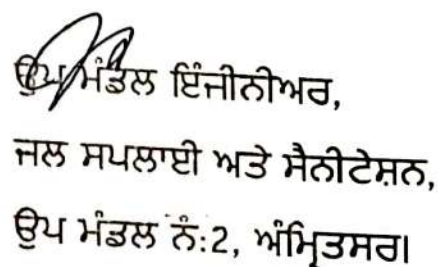 ਉਪ ਮੰਡਲ ਇੰਜੀਨੀਅਰ,
ਜਲ ਸਪਲਾਈ ਅਤੇ ਸੈਨੀਟੇਸ਼ਨ,
ਉਪ ਮੰਡਲ ਨੰ:2, ਅੰਮ੍ਰਿਤਸਰ।